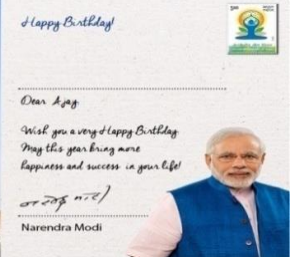 Happy Birthday!
5.00
Dear Ajay,
Wish you a very Happy Birthday.
May this year bring more
happiness and success in your life!
नरेन्द्र मोदी
Narendra Modi